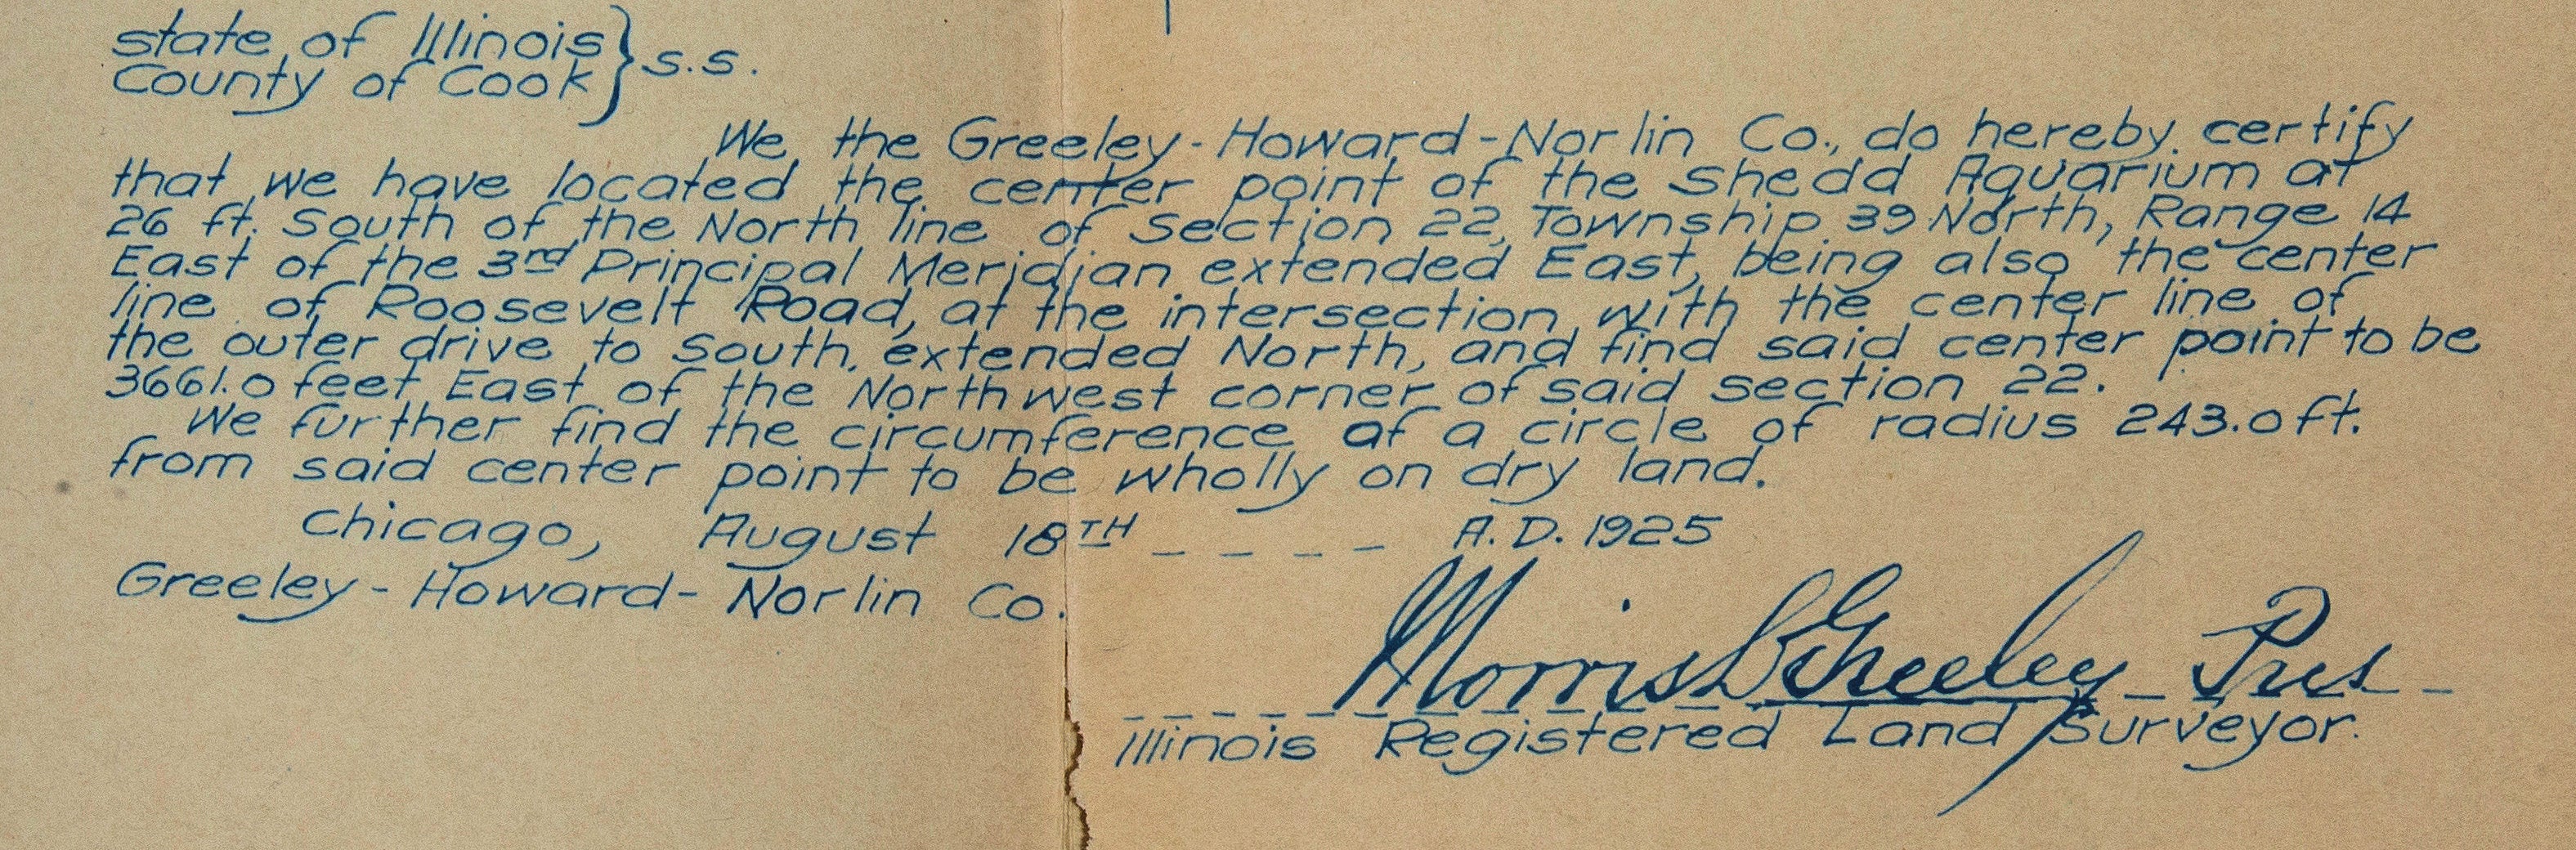 state of Illinois } s.s.
County of Cook
We the Greeley-Howard-Norlin Co., do hereby certify
that we have located the center point of the Shedd Aquarium at
26 ft. South of the North line of Section 22, Township 39 North, Range 14
East of the 3rd Principal Meridian extended East, being also the center
line of Roosevelt Road, at the intersection with the center line of
the outer drive to South, extended North, and find said center point to be
3661.0 feet East of the Northwest corner of said section 22.
We further find the circumference of a circle of radius 243.0 ft.
from said center point to be wholly on dry land.
Chicago, August 18TH _ _ _ _ A.D. 1925
Greeley-Howard-Norlin Co.
Morris L Greeley Pres
Illinois Registered Land Surveyor.